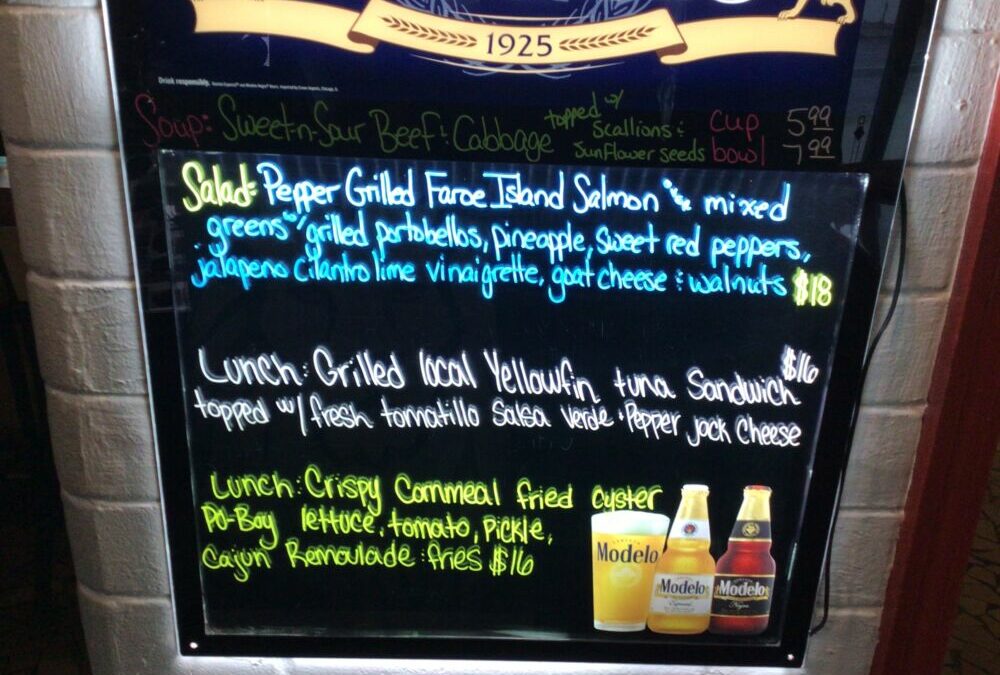 1925
Drink responsibly.
Soup: Sweet-n-Sour Beef & Cabbage topped w/ scallions & sunflower seeds
cup 5.99
bowl 7.99
Salad: Pepper Grilled Faroe Island Salmon mixed
greens w/ grilled portobellos, pineapple, sweet red peppers,
jalapeno cilantro lime vinaigrette, goat cheese & walnuts $18
Lunch: Grilled local Yellowfin tuna Sandwich $16
topped w/ fresh tomatillo Salsa verde & Pepper jack cheese
Lunch: Crispy Cornmeal fried oyster
Po-Boy lettuce, tomato, pickle,
Cajun Remoulade & fries $16
Modelo
Modelo
Especial
Modelo
Negra